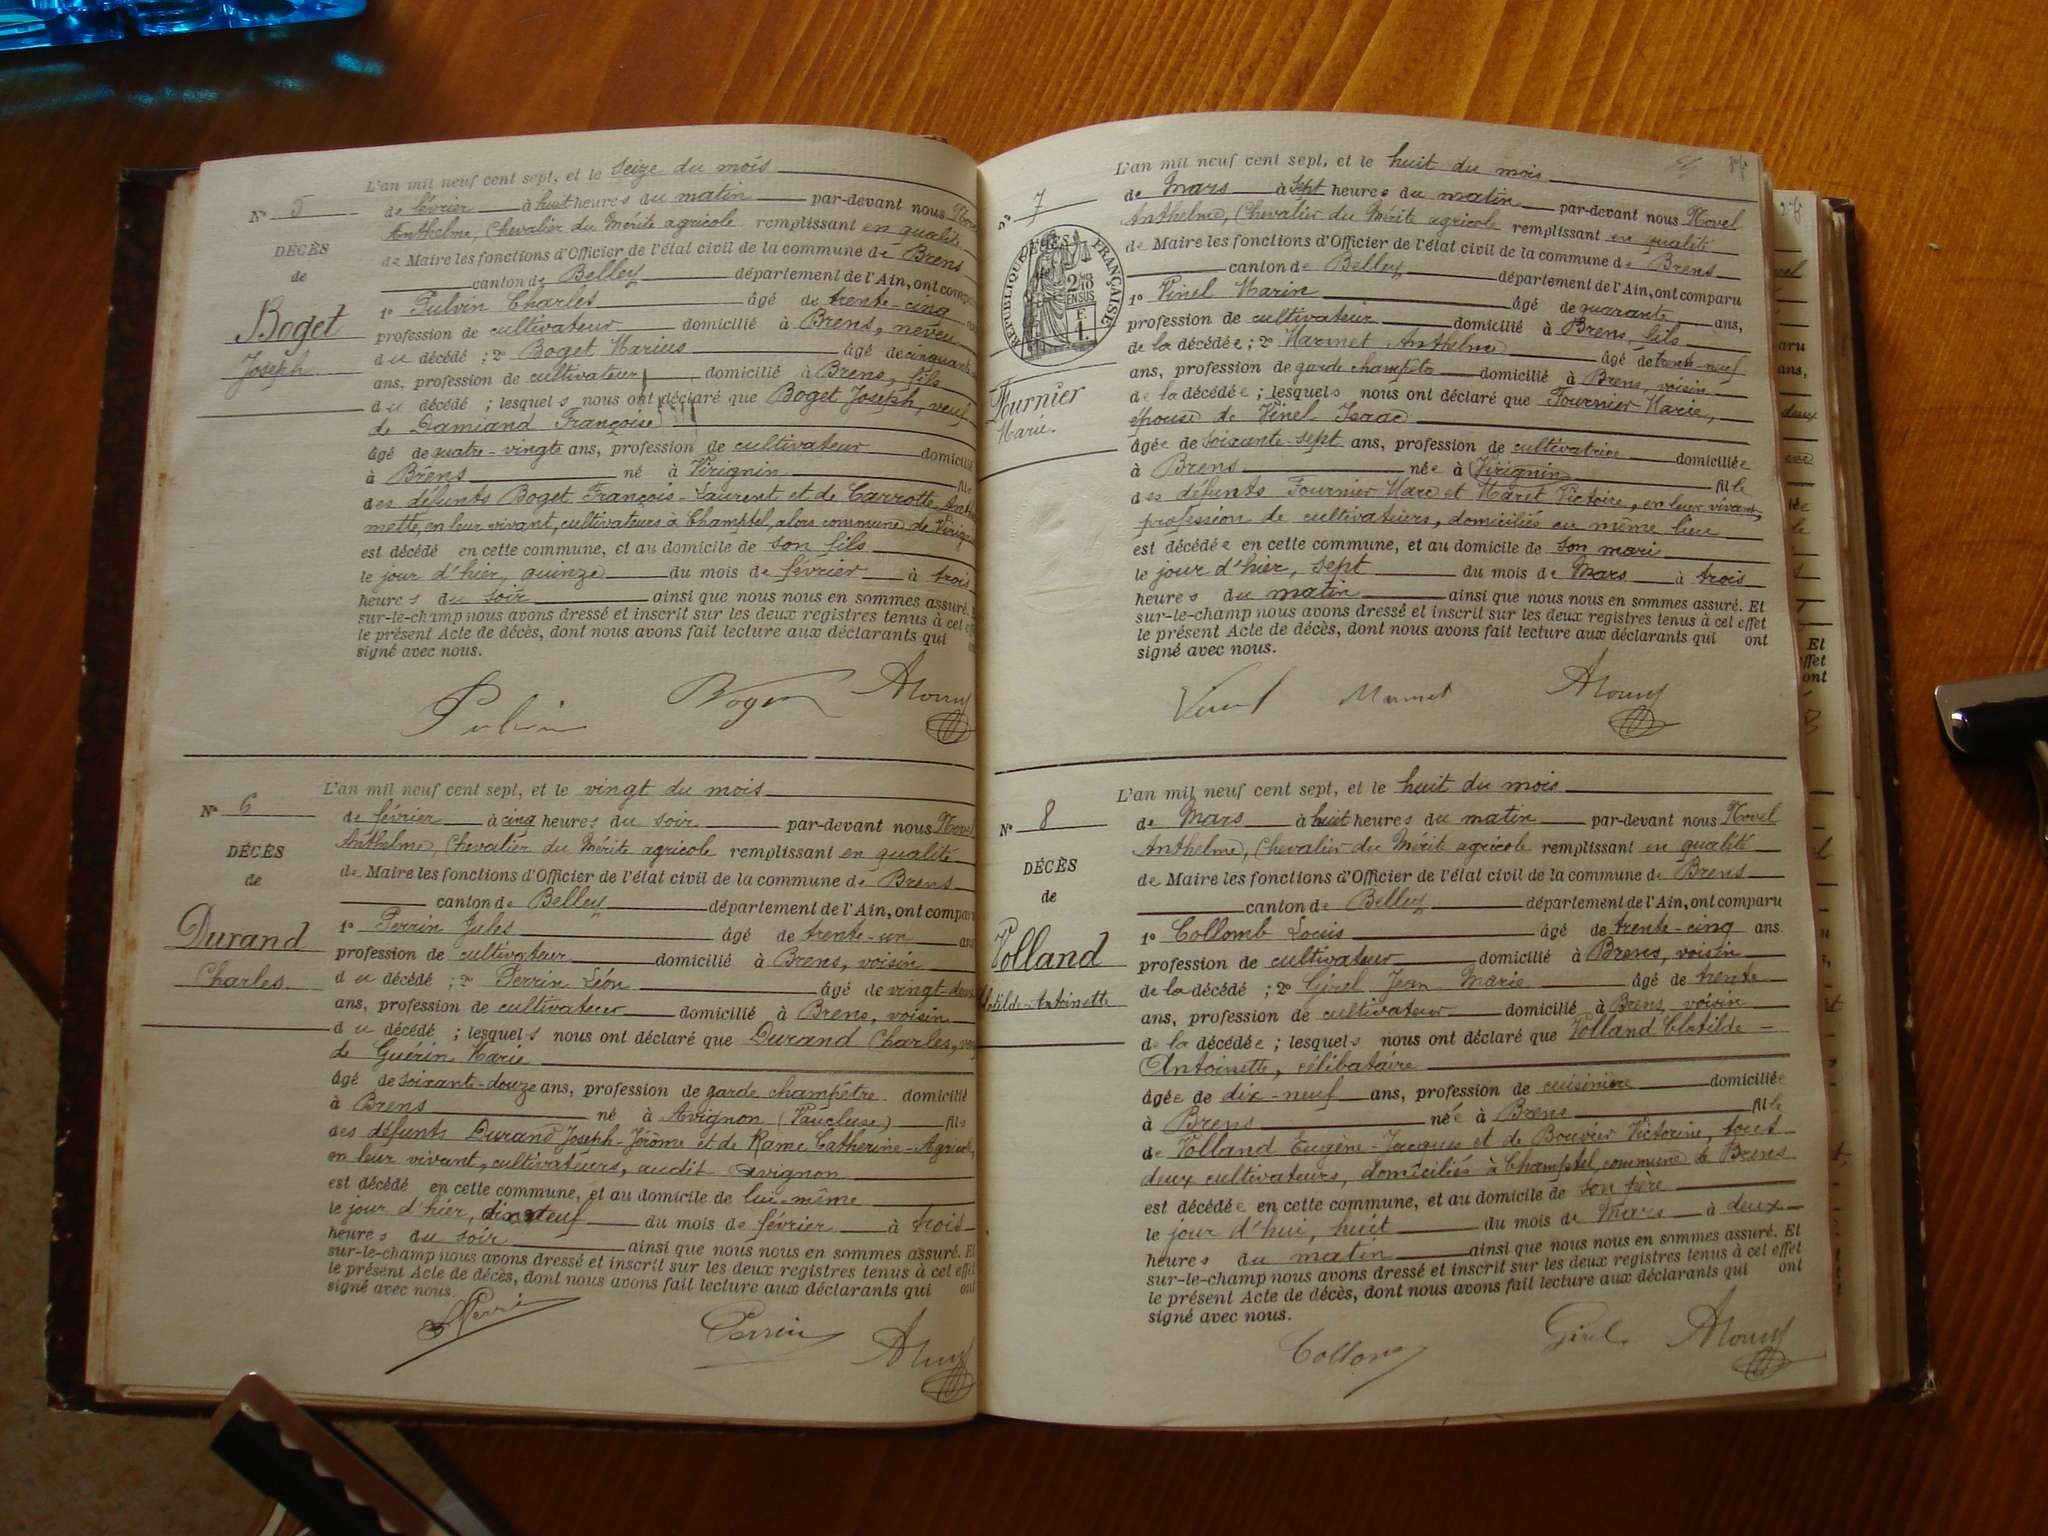 L'an mil neuf cent sept, et le seize du mois
N° 5
de février à huit heures du matin par-devant nous Novel
Anthelme, Chevalier du Mérite agricole remplissant en qualité
DÉCÈS
de Maire les fonctions d'Officier de l'état civil de la commune de Brens
de
canton de Belley département de l'Ain, ont comparu
Boget
1° Pulvin Charles âgé de trente-cinq
profession de cultivateur domicilié à Brens, neveu
Joseph
du décédé ; 2° Boget Marius âgé de cinquante
ans, profession de cultivateur domicilié à Brens, fils
du décédé ; lesquels nous ont déclaré que Boget Joseph, veuf
de Damiand Françoise
âgé de quatre-vingts ans, profession de cultivateur domicilié
à Brens né à Virignin fils
des défunts Boget François-Laurent et de Carrotte Anth
mette, en leur vivant, cultivateurs à Champtel, alors commune de Virignin
est décédé en cette commune, et au domicile de son fils
le jour d'hier, quinze du mois de février à trois
heures du soir ainsi que nous nous en sommes assuré. Et
sur-le-champ nous avons dressé et inscrit sur les deux registres tenus à cet effet
le présent Acte de décès, dont nous avons fait lecture aux déclarants qui ont
signé avec nous.
Pulvin Boget ANovel
L'an mil neuf cent sept, et le vingt du mois
N° 6
de février à cinq heures du soir par-devant nous Novel
Anthelme, Chevalier du Mérite agricole remplissant en qualité
DÉCÈS
de Maire les fonctions d'Officier de l'état civil de la commune de Brens
de
canton de Belley département de l'Ain, ont comparu
Durand
1° Perrin Jules âgé de trente-un ans
profession de cultivateur domicilié à Brens, voisin
Charles
du décédé ; 2° Perrin Léon âgé de vingt-deux
ans, profession de cultivateur domicilié à Brens, voisin
du décédé ; lesquels nous ont déclaré que Durand Charles, veuf
de Guérin Marie
âgé de soixante-douze ans, profession de garde champêtre domicilié
à Brens né à Avignon (Vaucluse) fils
des défunts Durand Joseph-Jérôme et de Rame Catherine-Agricole,
en leur vivant, cultivateurs, audit Avignon
est décédé en cette commune, et au domicile de lui-même
le jour d'hier, dix neuf du mois de février à trois
heures du soir ainsi que nous nous en sommes assuré. Et
sur-le-champ nous avons dressé et inscrit sur les deux registres tenus à cet effet
le présent Acte de décès, dont nous avons fait lecture aux déclarants qui ont
signé avec nous.
Perrin ANovel
L'an mil neuf cent sept, et le huit du mois
N° 7
de Mars à sept heures du matin par-devant nous Novel
Anthelme, Chevalier du Mérite agricole remplissant en qualité
DÉCÈS
de Maire les fonctions d'Officier de l'état civil de la commune de Brens
RÉPUBLIQUE FRANÇAISE
canton de Belley département de l'Ain, ont comparu
1° Vinel Marin âgé de quarante ans,
profession de cultivateur domicilié à Brens, fils
de la décédée ; 2° Marmet Anthelme âgé de trente-neuf
ans, profession de garde champête domicilié à Brens, voisin
Fournier
Marie.
de la décédée ; lesquels nous ont déclaré que Fournier Marie,
épouse de Vinel Isaac
âgée de soixante-sept ans, profession de cultivatrice domiciliée
à Brens née à Virignin fille
des défunts Fournier Marc et Maret Victoire, en leur vivant,
profession de cultivateurs, domiciliés au même lieu
est décédée en cette commune, et au domicile de son mari
le jour d'hier, sept du mois de Mars à trois
heures du matin ainsi que nous nous en sommes assuré. Et
sur-le-champ nous avons dressé et inscrit sur les deux registres tenus à cet effet
le présent Acte de décès, dont nous avons fait lecture aux déclarants qui ont
signé avec nous.
Vinel Marmet ANovel
L'an mil neuf cent sept, et le huit du mois
N° 8
de Mars à huit heures du matin par-devant nous Novel
Anthelme, Chevalier du Mérite agricole remplissant en qualité
DÉCÈS
de Maire les fonctions d'Officier de l'état civil de la commune de Brens
de
canton de Belley département de l'Ain, ont comparu
Volland
1° Collomb Louis âgé de trente-cinq ans
profession de cultivateur domicilié à Brens, voisin
Clotilde-Antoinette
de la décédé ; 2° Girel Jean Marie âgé de trente
ans, profession de cultivateur domicilié à Brens, voisin
de la décédée ; lesquels nous ont déclaré que Volland Clotilde-
Antoinette, célibataire
âgée de dix-neuf ans, profession de cuisinière domiciliée
à Brens née à Brens fille
de Volland Eugène-Jacques et de Bouvier Victorine, tout
deux cultivateurs, domiciliés à Champtel, commune de Brens
est décédée en cette commune, et au domicile de son père
le jour d'hui, huit du mois de Mars à deux
heures du matin ainsi que nous nous en sommes assuré. Et
sur-le-champ nous avons dressé et inscrit sur les deux registres tenus à cet effet
le présent Acte de décès, dont nous avons fait lecture aux déclarants qui ont
signé avec nous.
Collomb Girel ANovel